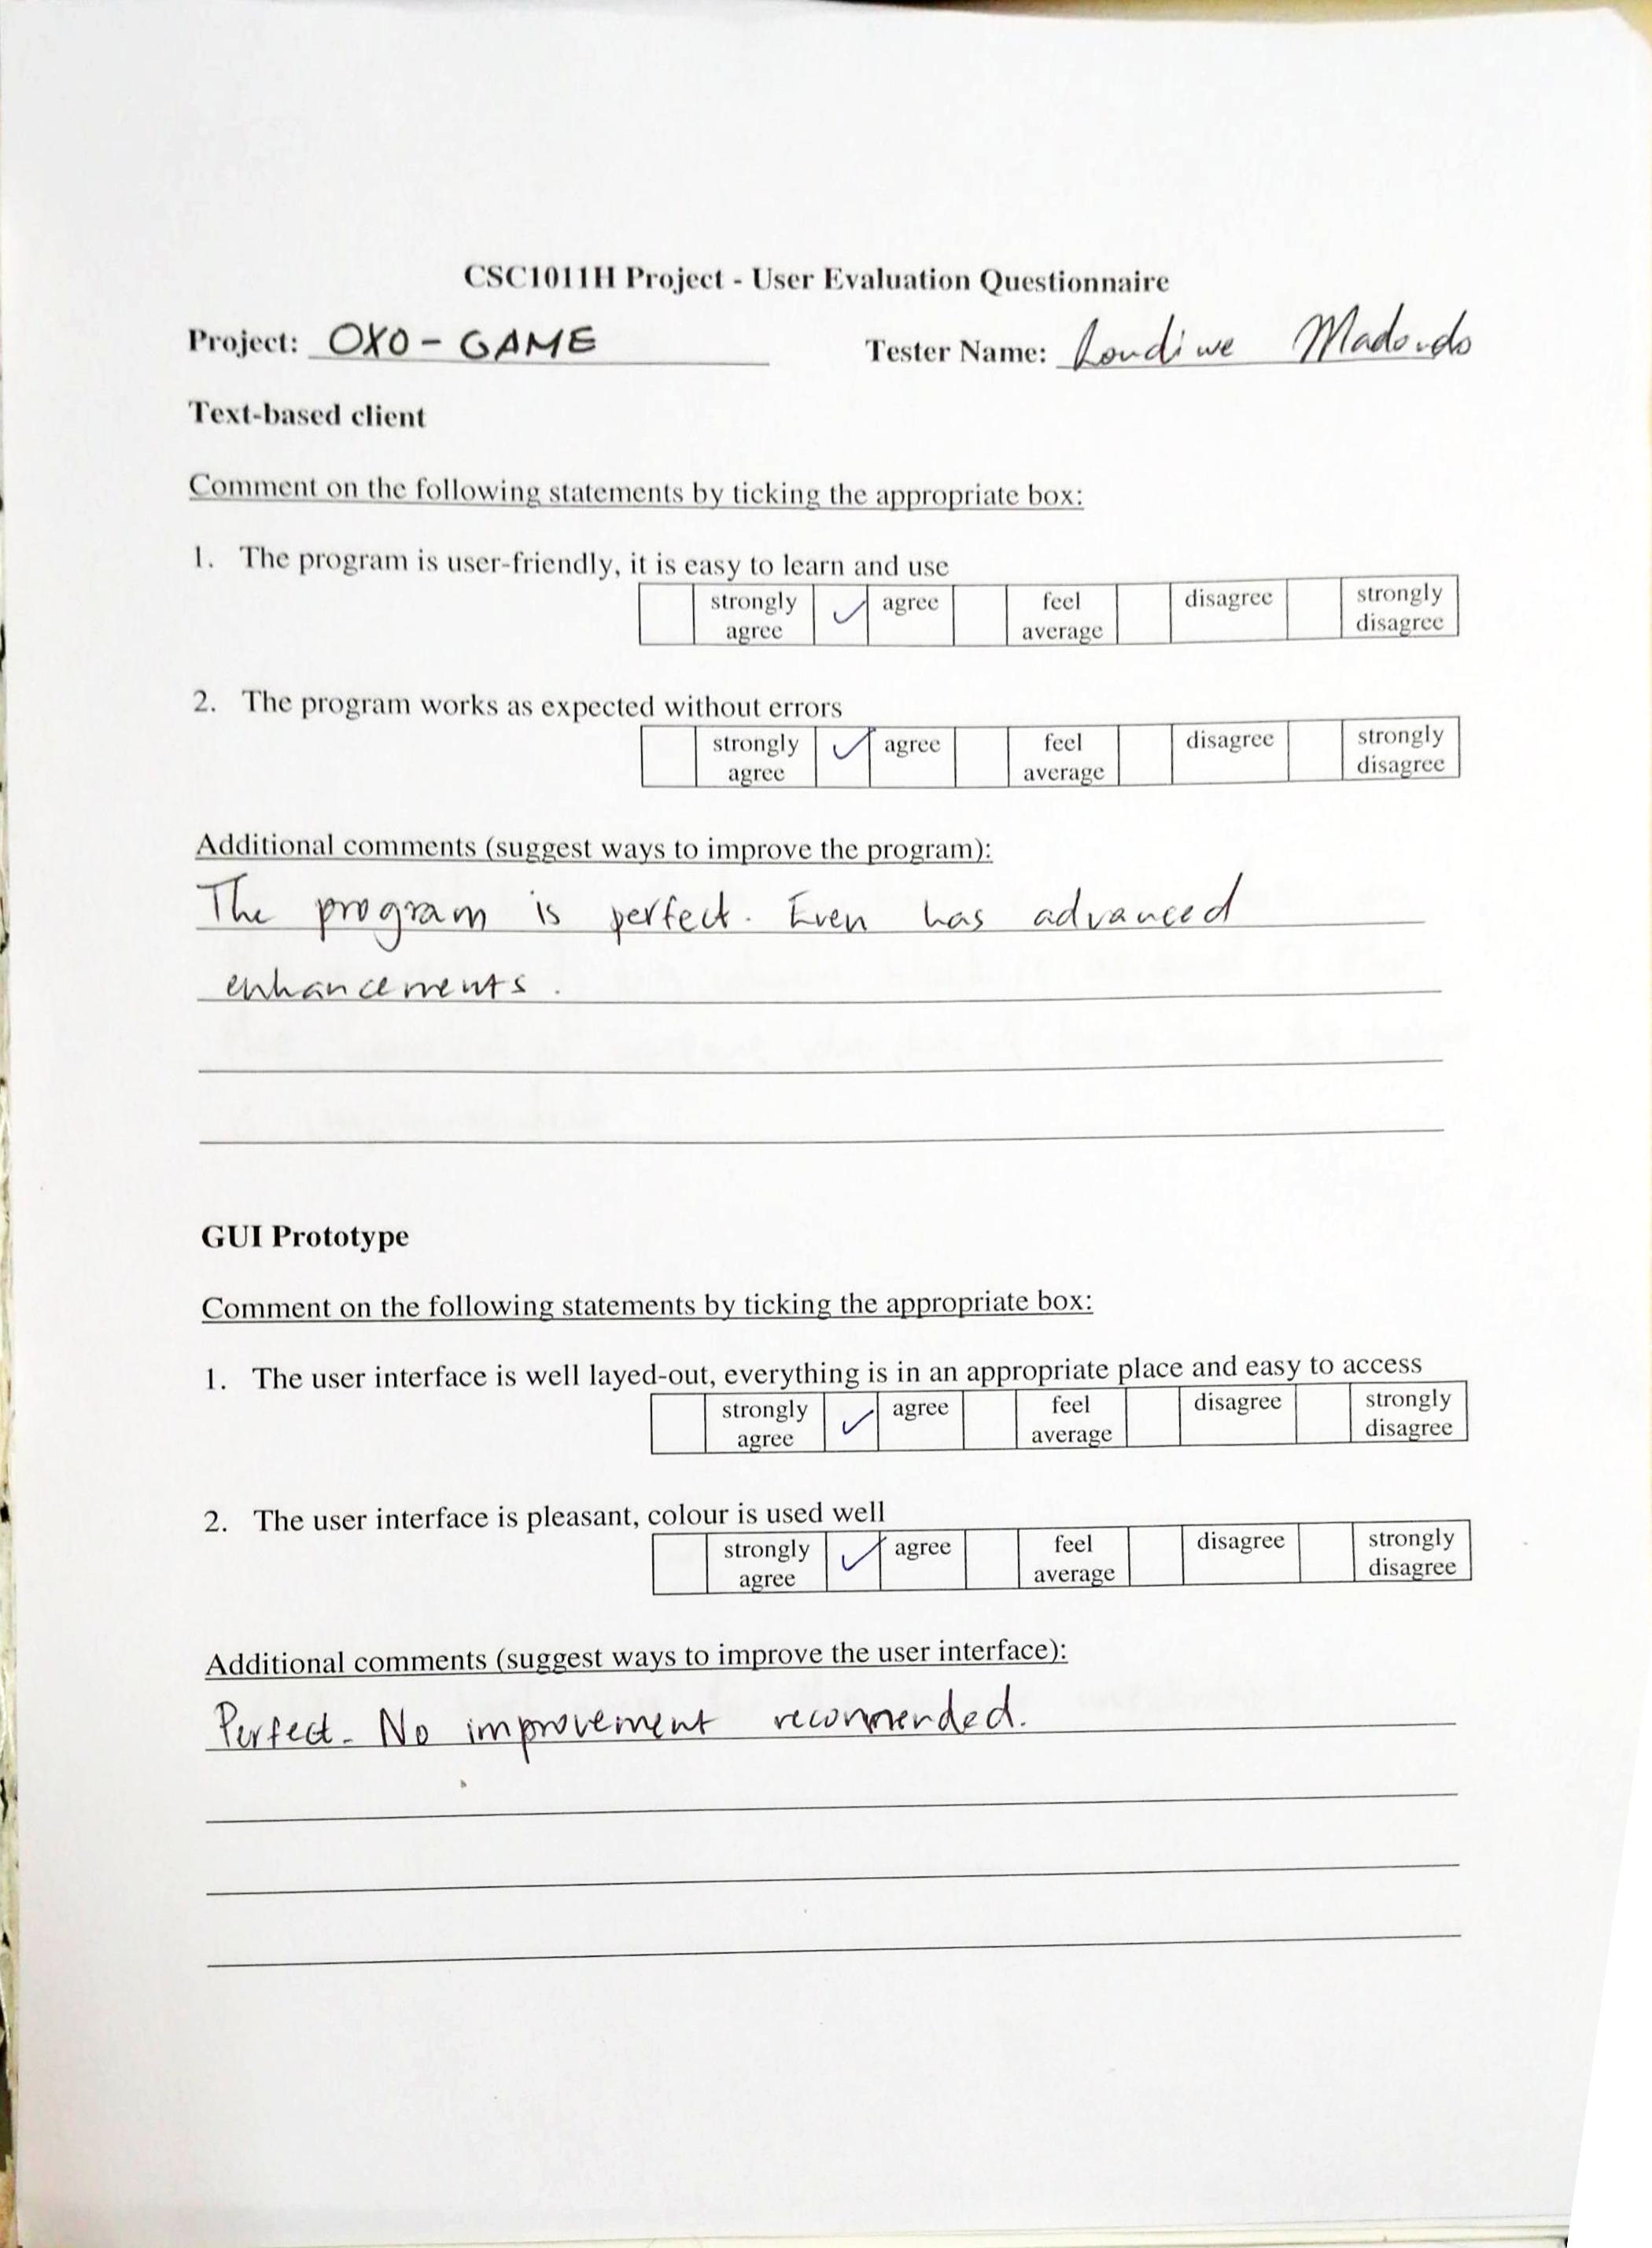 CSC1011H Project - User Evaluation Questionnaire
Project: OXO - GAME Tester Name: Londiwe Madondo
Text-based client
Comment on the following statements by ticking the appropriate box:
1. The program is user-friendly, it is easy to learn and use
strongly agree ✓ agree feel average disagree strongly disagree
2. The program works as expected without errors
strongly agree ✓ agree feel average disagree strongly disagree
Additional comments (suggest ways to improve the program):
The program is perfect. Even has advanced
enhancements.
GUI Prototype
Comment on the following statements by ticking the appropriate box:
1. The user interface is well layed-out, everything is in an appropriate place and easy to access
strongly agree ✓ agree feel average disagree strongly disagree
2. The user interface is pleasant, colour is used well
strongly agree ✓ agree feel average disagree strongly disagree
Additional comments (suggest ways to improve the user interface):
Perfect. No improvement recommended.